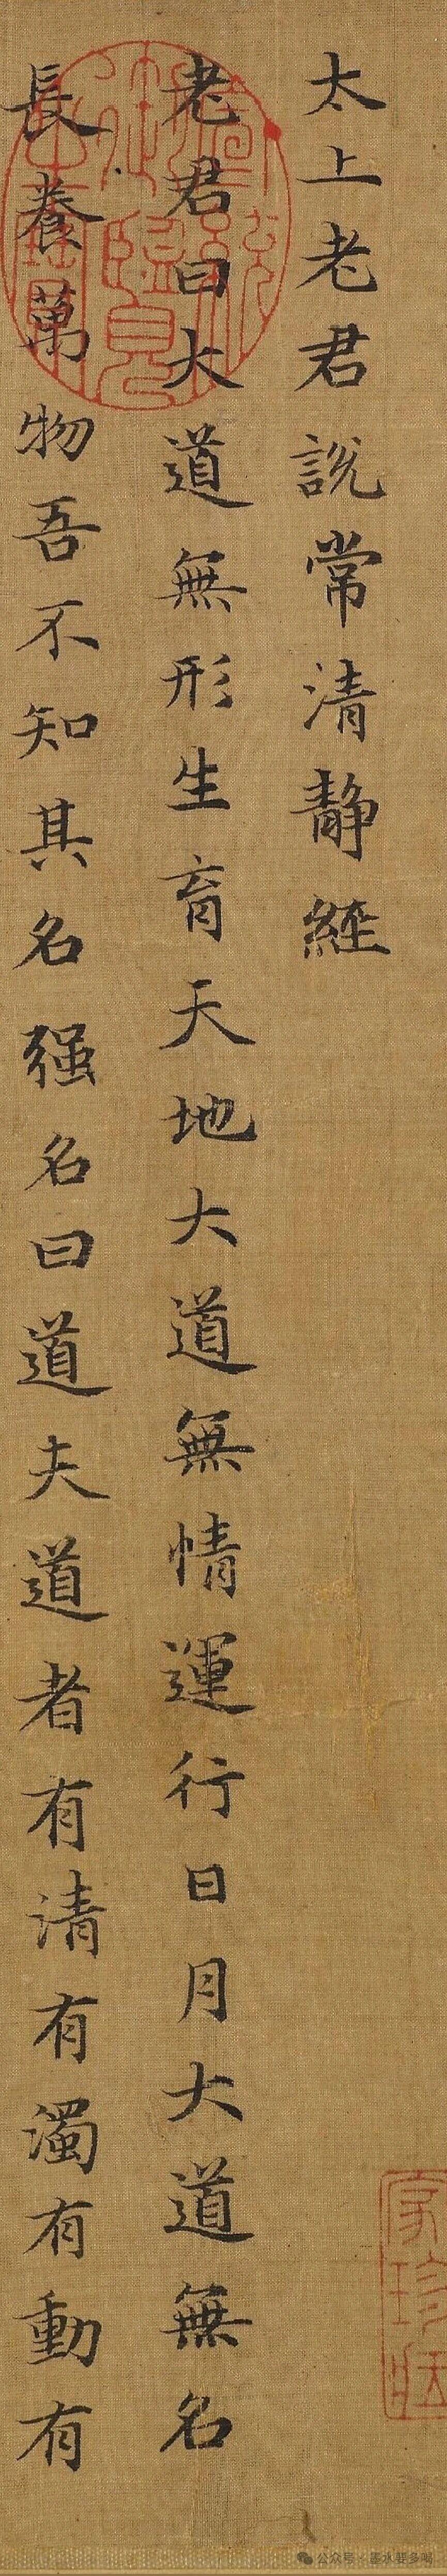 太上老君說常清靜經
老君曰大道無形生育天地大道無情運行日月大道無名
長養萬物吾不知其名强名曰道夫道者有清有濁有動有
家珍
公众号·墨水要多喝